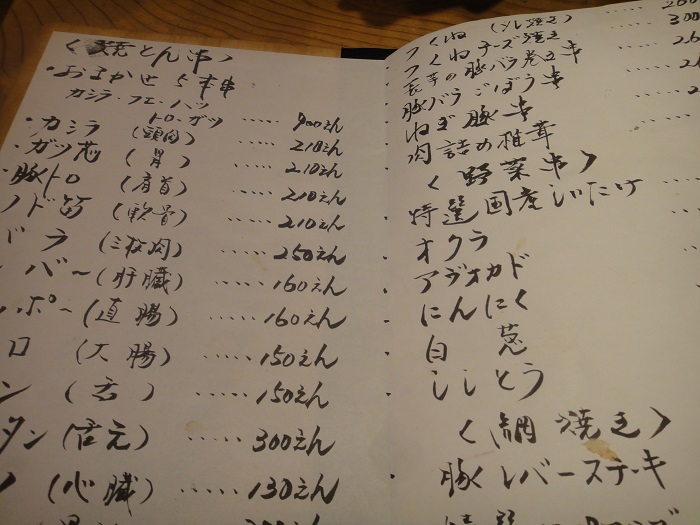 〈焼とん串〉
・おまかせ5本串
カシラ・フエ・ハツ
トロ・ガツ ····· 900えん
・カシラ (頭肉) ····· 210えん
・ガツ芯 (胃) ····· 210えん
・豚トロ (肩首) ····· 210えん
ノド笛 (軟骨) ····· 210えん
バラ (三枚肉) ····· 250えん
バー (肝臓) ····· 160えん
ポー (直腸) ····· 160えん
ロ (大腸) ····· 150えん
ン (舌) ····· 150えん
タン (舌元) ····· 300えん
(心臓) ····· 130えん
つくね (タレ焼き)
つくねチーズ焼き ····· 300
長芋の豚バラ巻き串
豚バラごぼう串
ねぎ豚串
肉詰め椎茸
〈野菜串〉
特選国産しいたけ
オクラ
アボカド
にんにく
白葱
ししとう
〈網焼き〉
・豚レバーステーキ